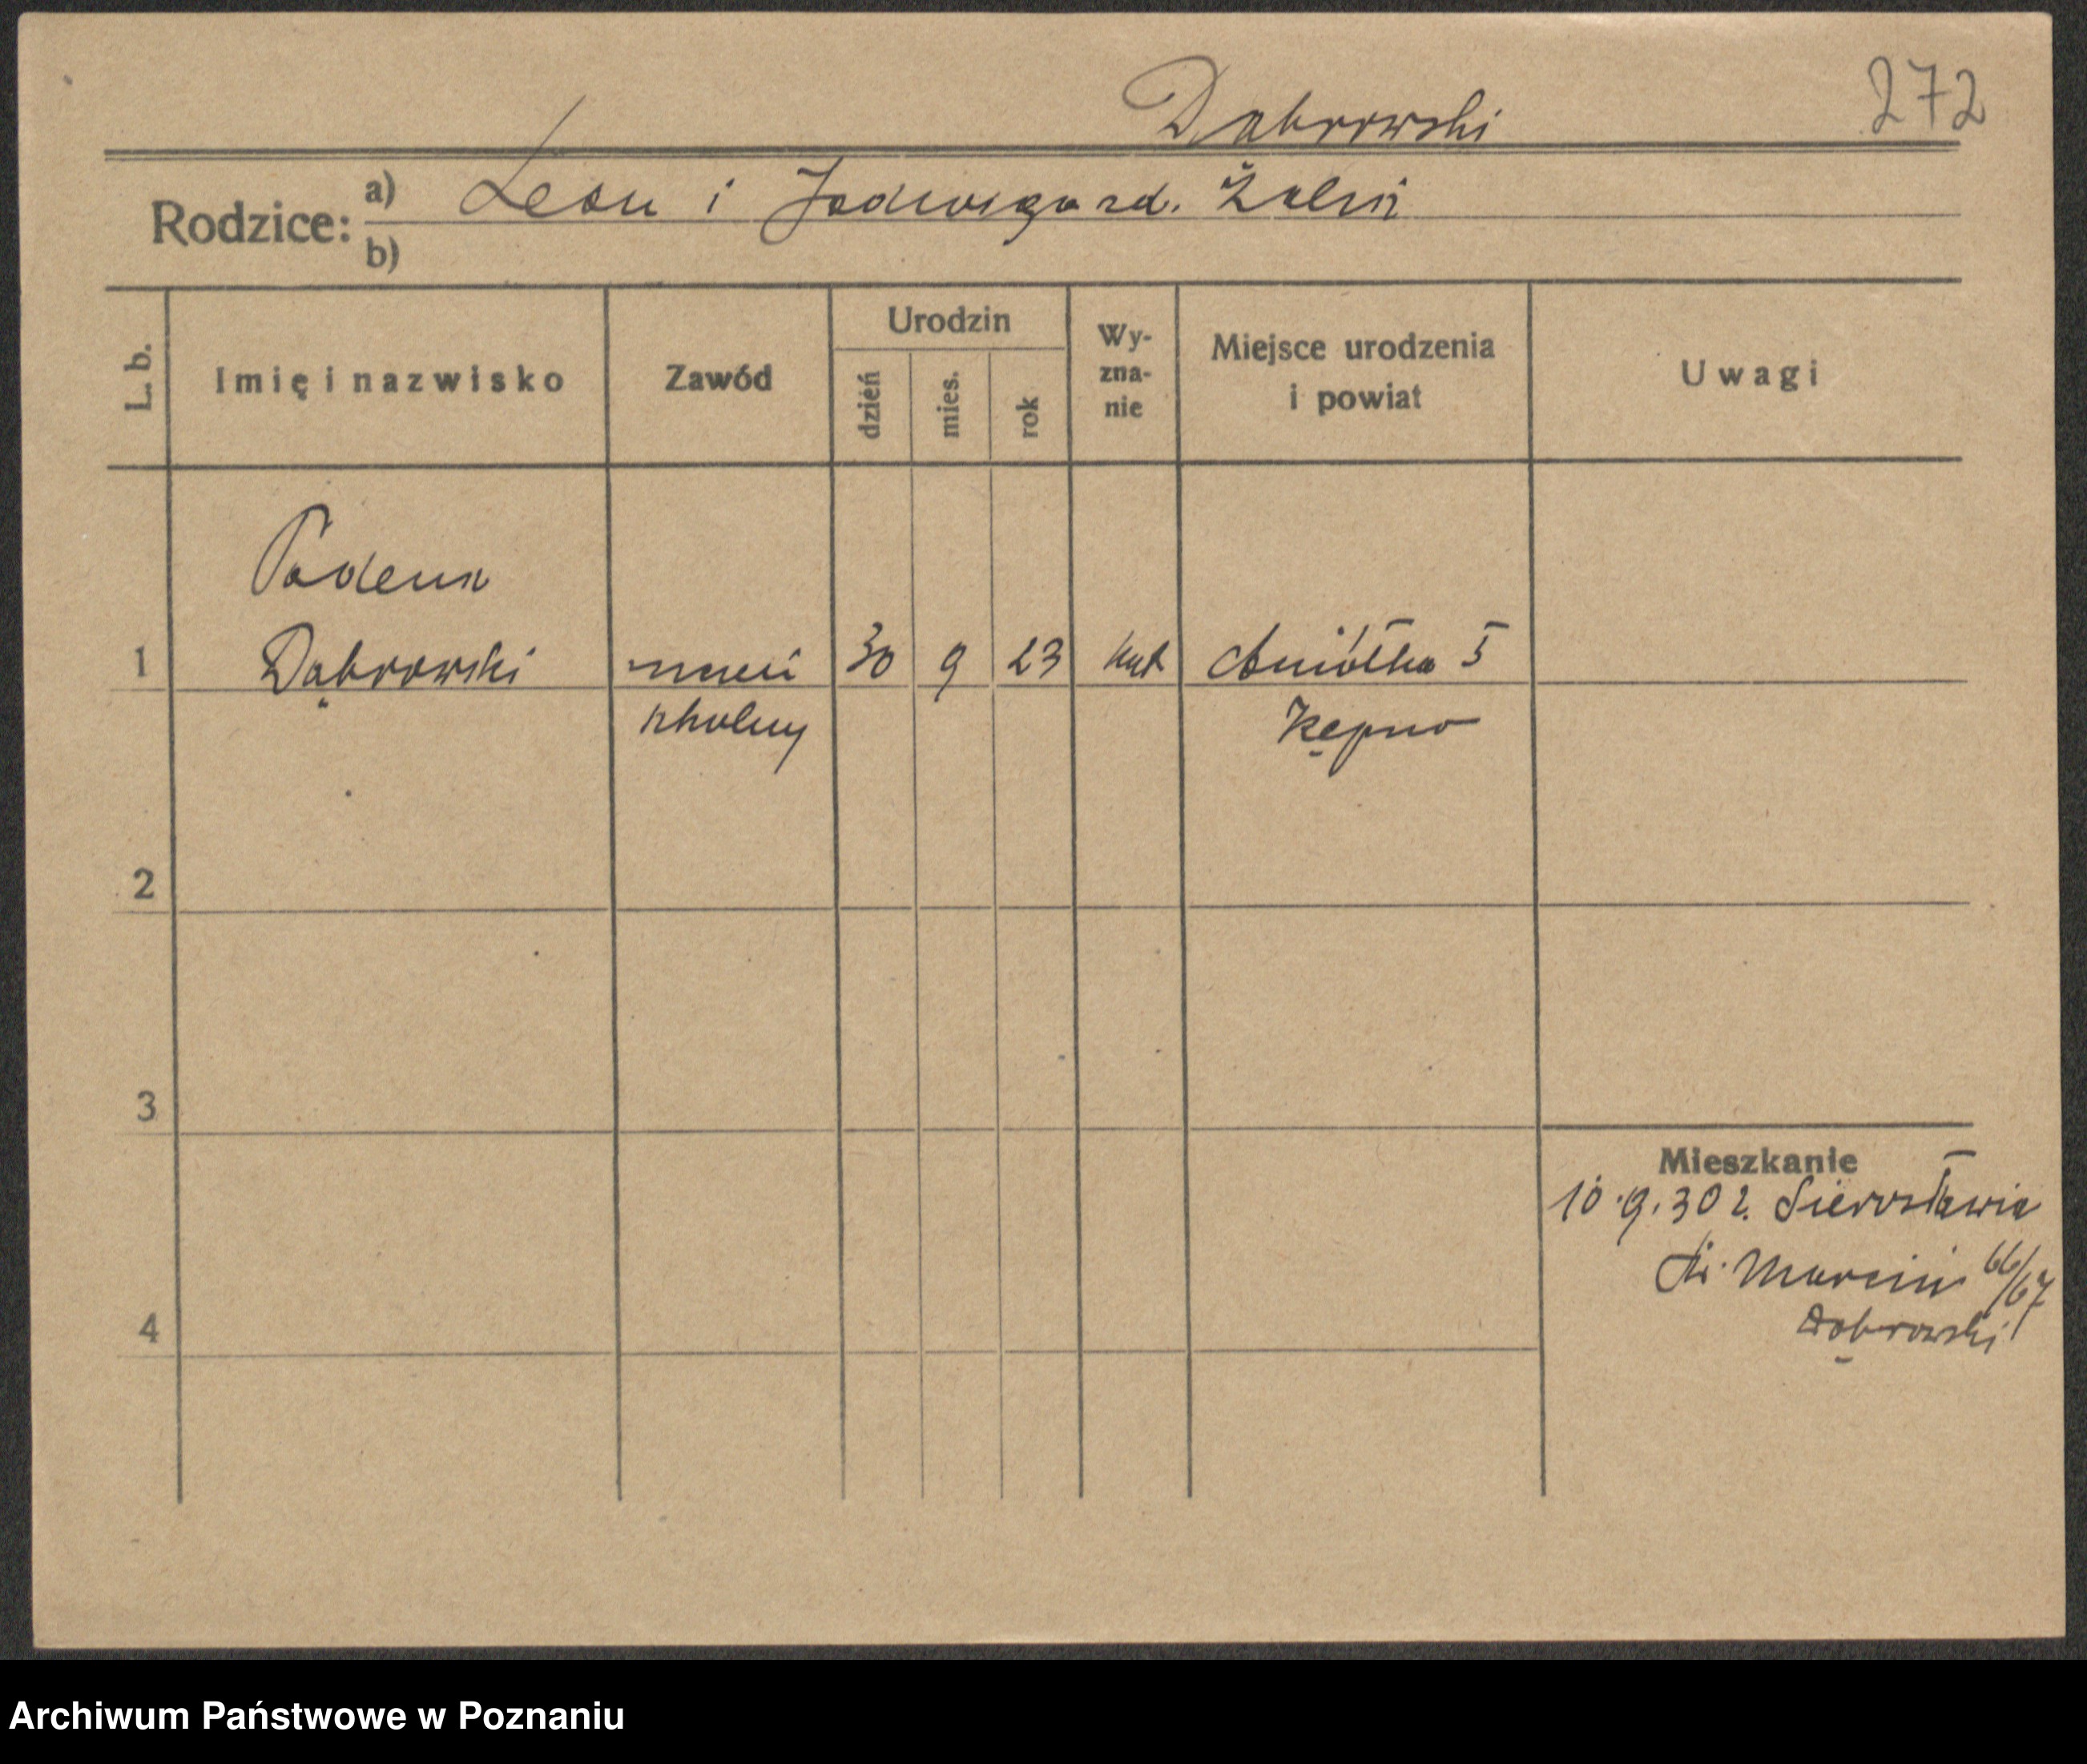 Dabrowski 272
Rodzice: a) Leon i Jadwiga zd.
b)
L. b. Imię i nazwisko Zawód Urodzin dzień mies. rok Wy-zna-nie Miejsce urodzenia i powiat Uwagi
1 Dąbrowski uczeń 30 9 23 kat Aniołka I
szkolny Kępno
2
3
Mieszkanie
10.9.30 z. Sierosławia
Św. Marcin 66/67
4 Dąbrowski
Archiwum Państwowe w Poznaniu